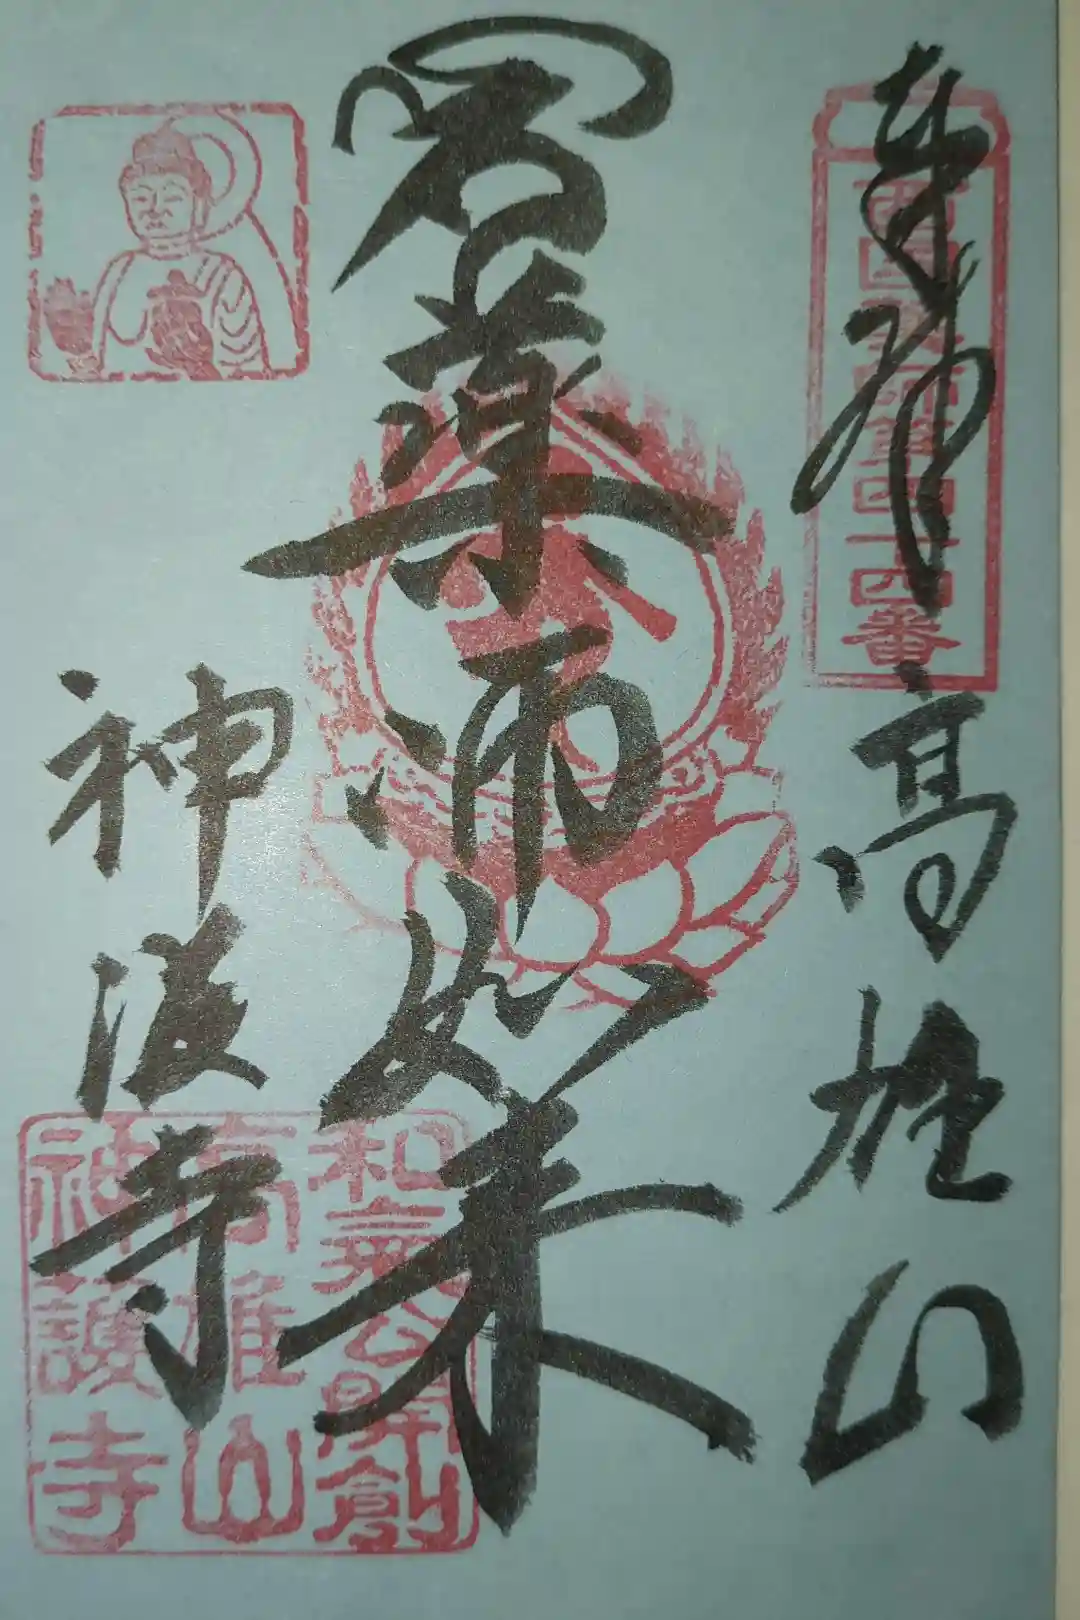 奉拝
高雄山
西国薬師第四十四番
君薬師如来
神護寺
和氣公開創
高雄山
神護寺